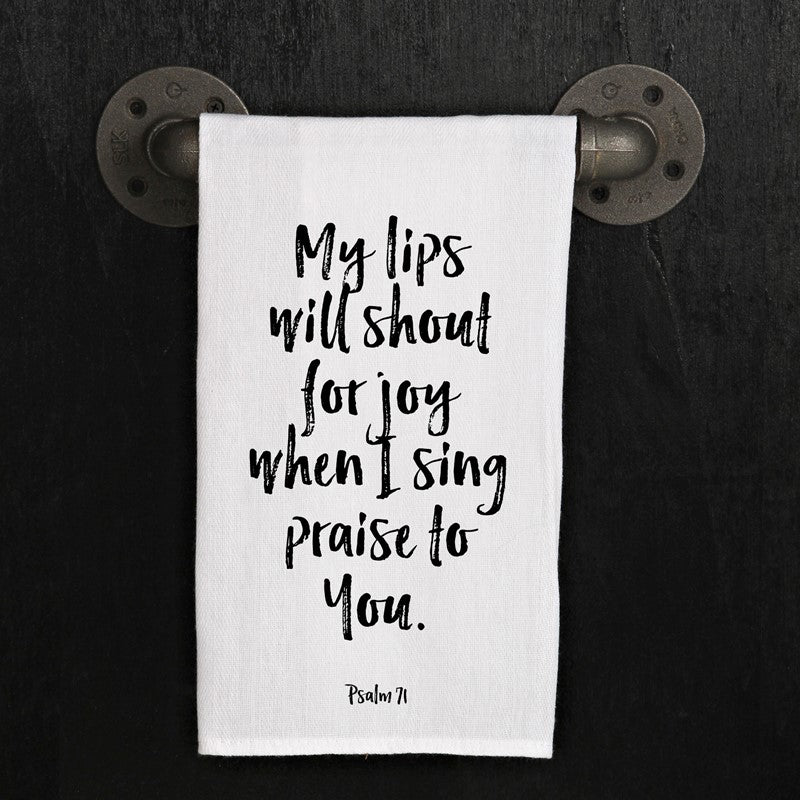 My lips
will shout
for joy
when I sing
praise to
You.
Psalm 71